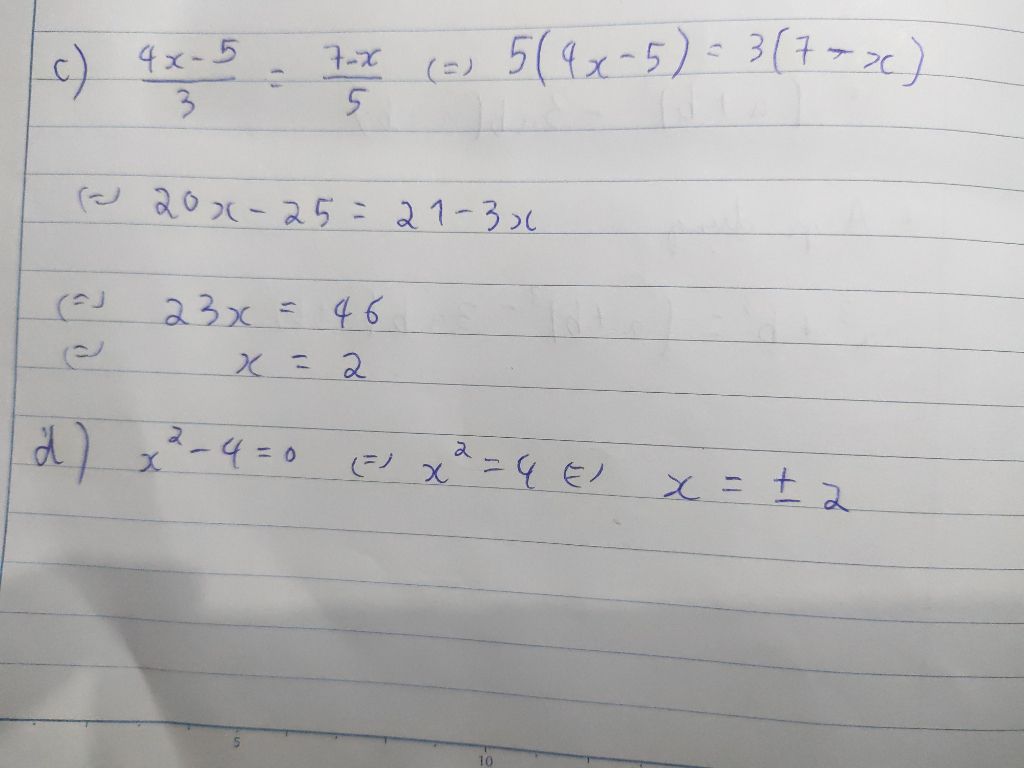 c) (4x-5)/3 = (7-x)/5 (=) 5(4x-5) = 3(7-x)
(=) 20x - 25 = 21 - 3x
(=) 23x = 46
(=) x = 2
d) x² - 4 = 0 (=) x² = 4 (=) x = ± 2
5
10